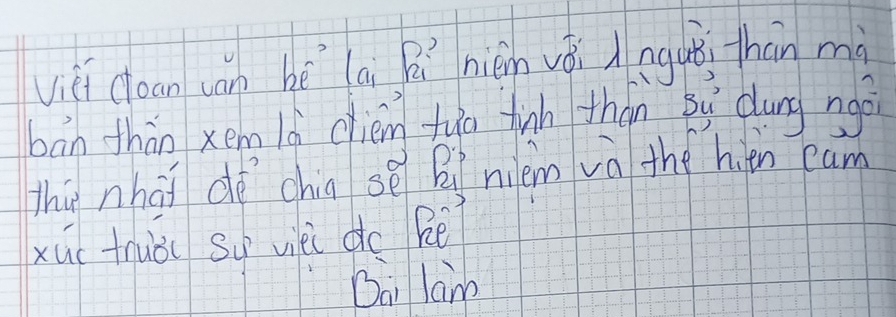 Viết đoạn văn kể lại kỉ niệm với 1 người thân mà
bản thân xem là điểm tựa tinh thần sử dụng ngôi
thứ nhất để chia sẽ kỉ niệm và thể hiện cảm
xúc trước sự việc đc kể
Bài làm